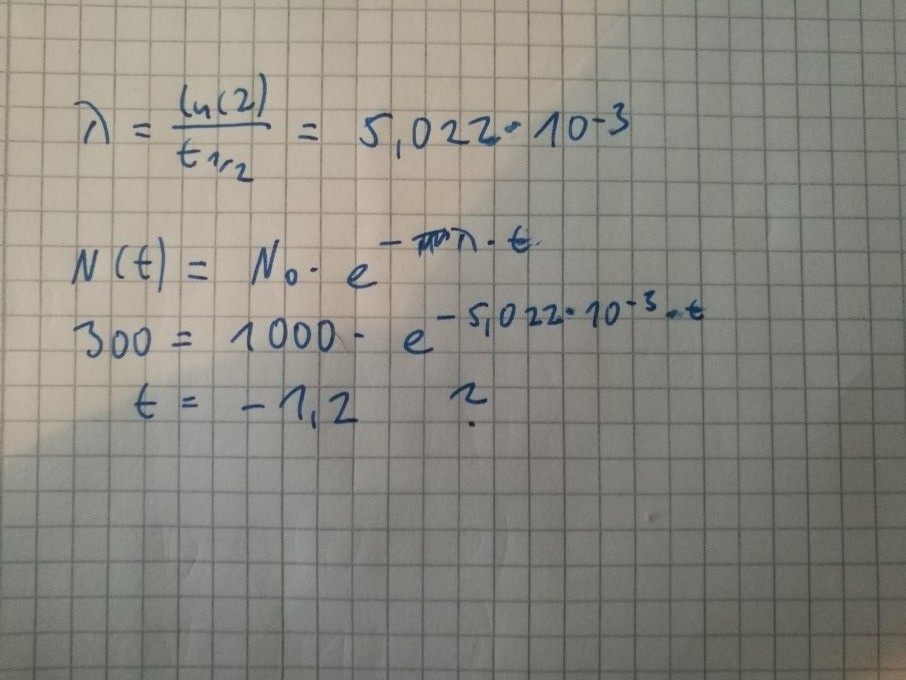 λ = ln(2) / t 1/2 = 5,022 · 10^-3
N(t) = N₀ · e^-λ · t
300 = 1000 · e^-5,022 · 10^-3 · t
t = -1,2 ?